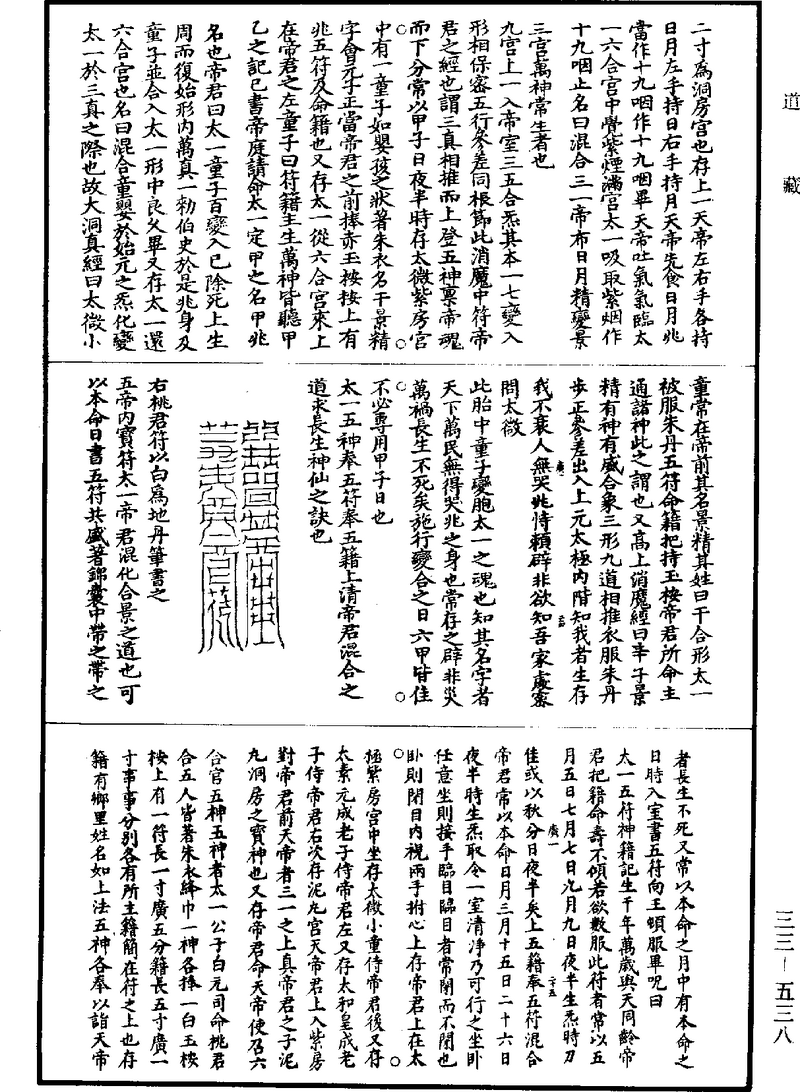 道藏
二寸爲洞房宮也存上一天帝左右手各持
日月左手持日右手持月天帝先食日月兆
當作十九咽作十九咽畢天帝吐氣氣臨太
一六合宮中覺紫煙滿宮太一吸取紫烟作
十九咽止名曰混合三一帝布日月精變景
三宮萬神常生者也
九宮上一入帝室三五合炁其本一七變入
形相保審五行參差同根節此消魔中符帝
君之經也謂三真相推而上登五神稟帝魂
而下分常以甲子日夜半時存太微紫房宮
中有一童子如嬰孩之狀著朱衣名干景精
字會元子正當帝君之前捧赤玉按按上有
兆五符及命籍也又存太一從六合宮來上
在帝君之左童子曰符籍主生萬神皆聽甲
乙之記已書帝庭請命太一定甲之名甲兆
名也帝君曰太一童子百變入已除死上生
周而復始形内萬真一勑伯史於是兆身及
童子並合入太一形中良久畢又存太一還
六合宮也名曰混合童嬰於始元之炁化變
太一於三真之際也故大洞真經曰太微小
童常在帝前其名景精其姓曰干合形太一
被服朱丹五符命籍把持玉按帝君所命主
通諸神此之謂也又高上消魔經曰辛子景
精有神有威合象三形九道相推衣服朱丹
步正參差出入上元太極内階知我者生存
我不衰人無哭兆恃賴辟非欲知吾家處審
問太微
此胎中童子變胞太一之魂也知其名字者
天下萬民無得哭兆之身也常存之辟非災
萬禍長生不死矣施行變合之日六甲皆佳
不必專用甲子日也
太一五神奉五符奉五籍上清帝君混合之
道求長生神仙之訣也
右桃君符以白爲地丹筆書之
五帝内寶符太一帝君混化合景之道也可
以本命日書五符共盛著錦囊中帶之帶之
者長生不死又常以本命之月中有本命之
日時入室書五符向王頓服畢呪曰
太一五符神籍記生千年萬歲與天同齡帝
君把籍命壽不傾若欲數服此符者常以五
月五日七月七日九月九日夜半生炁時刀
佳或以秋分日夜半矣上五籍奉五符混合
帝君常以本命日月三月十五日二十六日
夜半時生炁取令一室清淨乃可行之坐卧
任意坐則按手臨目臨目者常閉而不閉也
卧則閉目内視兩手拊心上存帝君上在太
極紫房宮中坐存太微小童侍帝君後又存
太素元成老子侍帝君左又存太和皇成老
子侍帝君右次存泥丸宮天帝君上入紫房
對帝君前天帝者三一之上真帝君之子泥
丸洞房之寶神也又存帝君命天帝使召六
合官五神五神者太一公子白元司命桃君
合五人皆著朱衣絳巾一神各捧一白玉按
按上有一符長一寸廣五分籍長五寸廣一
寸事事分别各有所主籍簡在符之上也存
籍有鄉里姓名如上法五神各奉以詣天帝
三三－五三八